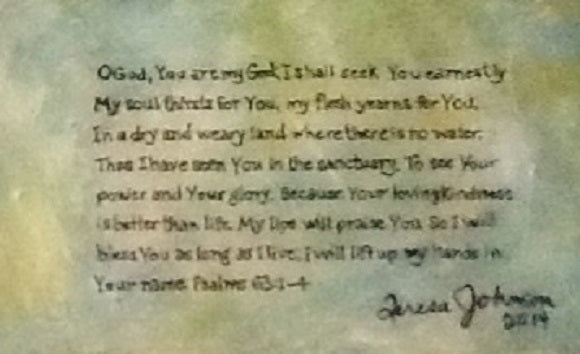 O God, You are my God, I shall seek You earnestly
My soul thirsts for You, my flesh yearns for You,
In a dry and weary land where there is no water.
Thus I have seen You in the sanctuary, To see Your
power and Your glory. Because Your lovingkindness
is better than life, My lips will praise You. So I will
bless You as long as I live; I will lift up my hands in
Your name. Psalms 63:1-4
Teresa Johnson
2014